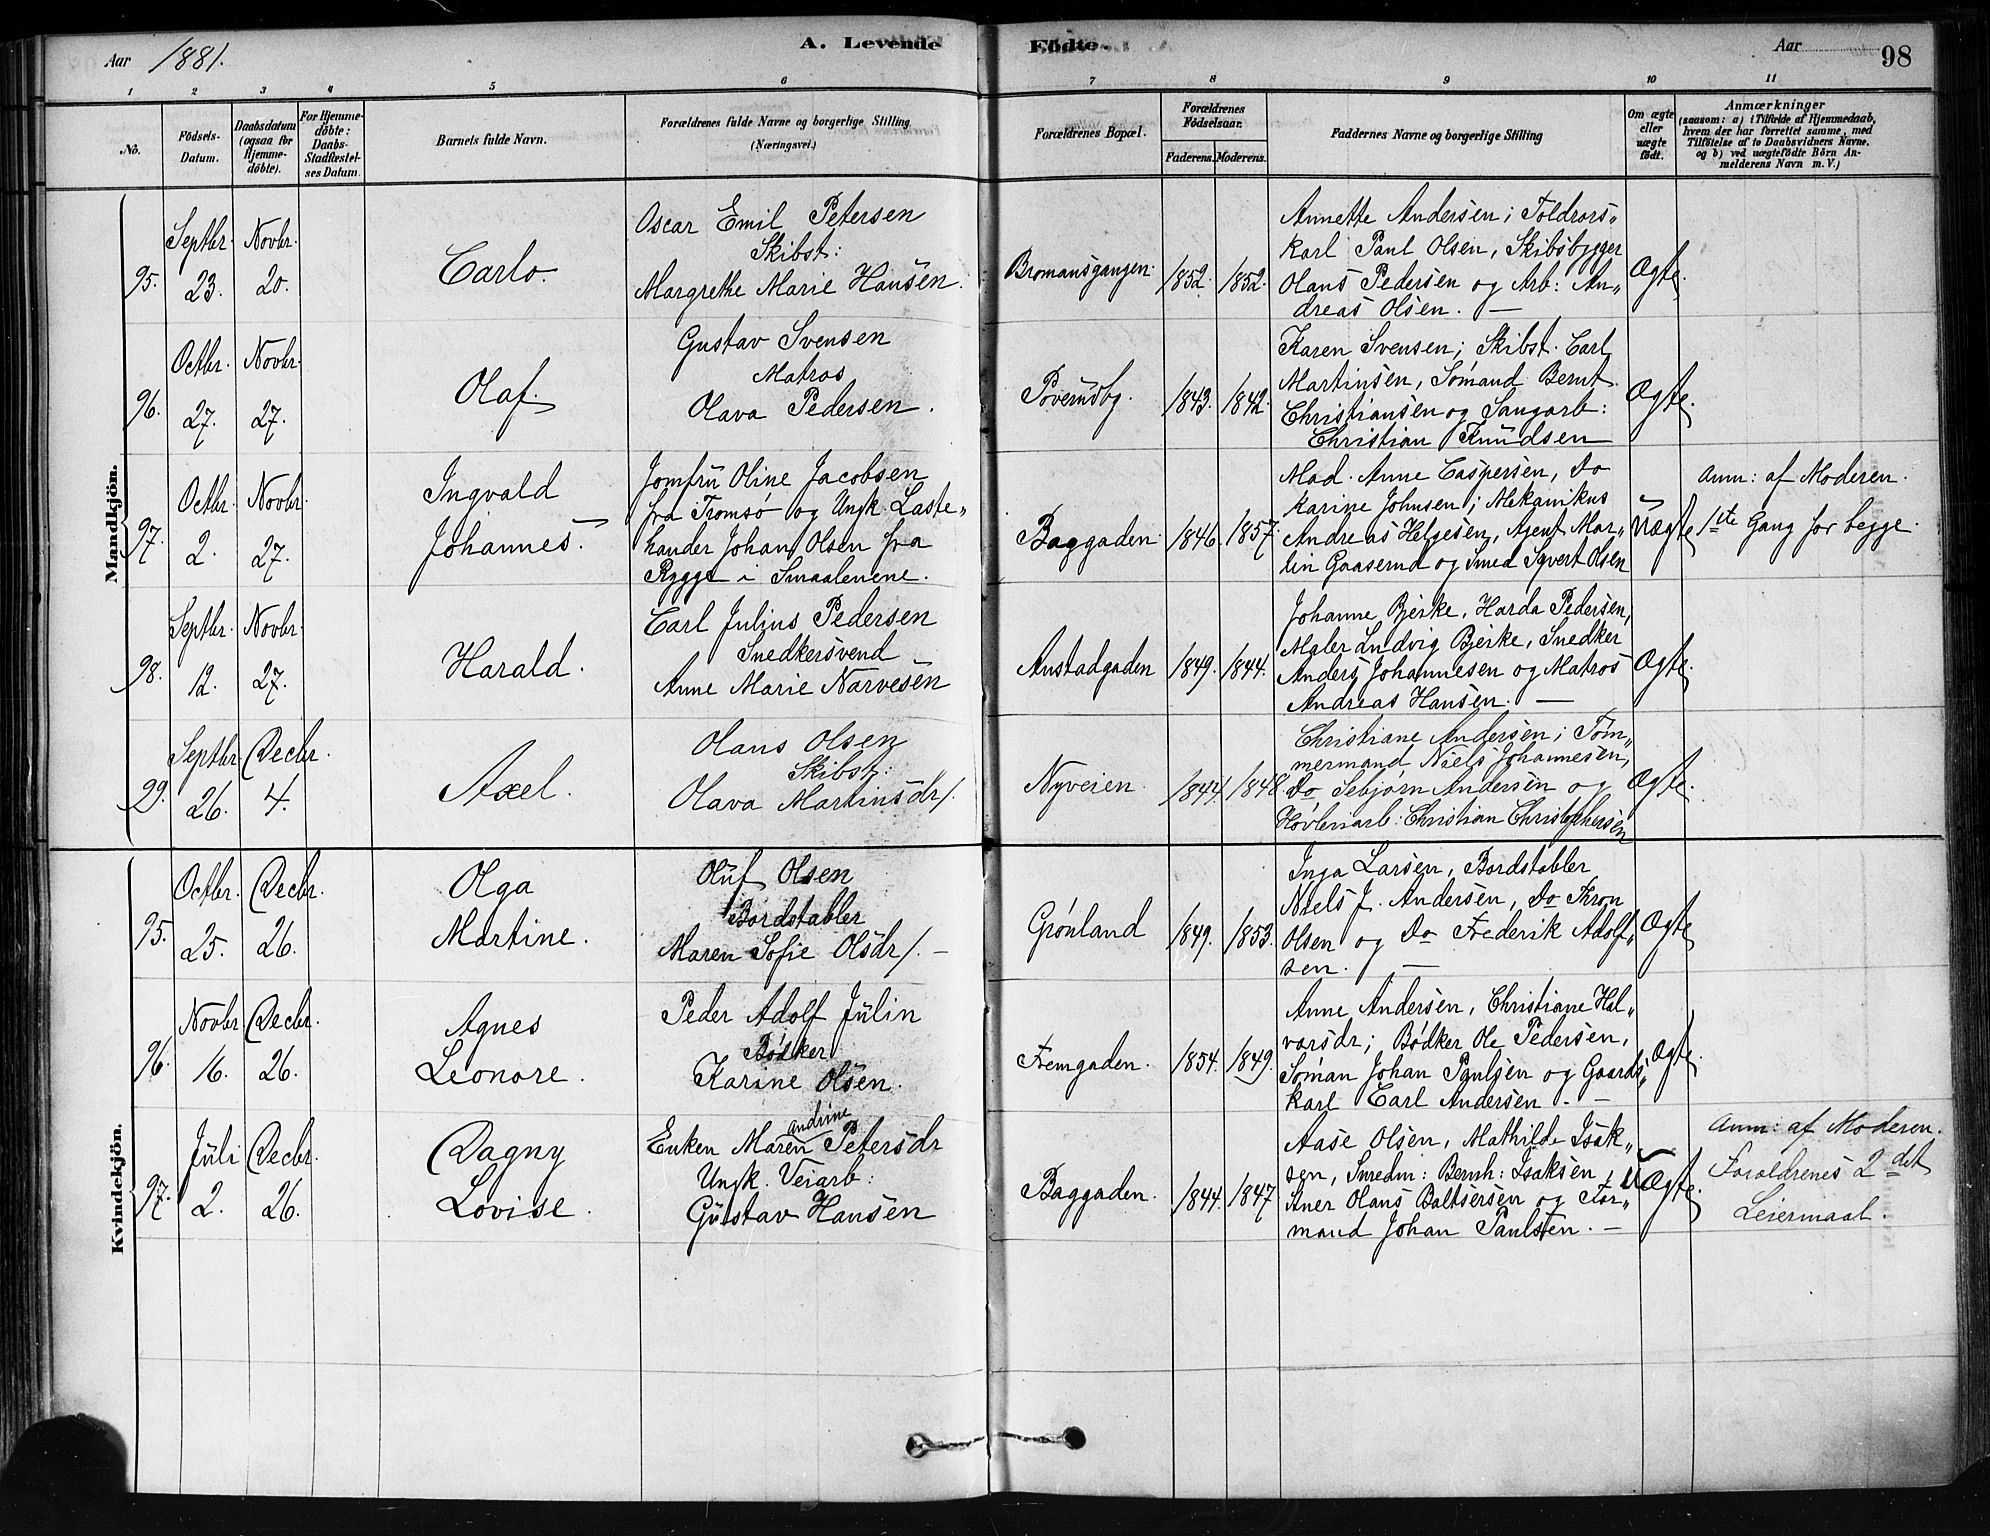 Aar 1881. A. Levende Fødte. Aar 98
1 2 3 4 5 6 7 8 9 10 11
No.
Fødsels-Datum.
Daabsdatum (ogsaa for Hjemme-døbte).
For Hjemme-døbte: Daabs-Stadfæstel-ses Datum.
Barnets fulde Navn.
Forældrenes fulde Navne og borgerlige Stilling (Næringsvei.)
Forældrenes Bopæl.
Forældrenes Fødselsaar.
Faderens. Moderens.
Faddernes Navne og borgerlige Stilling
Om ægte eller uægte født.
Anmærkninger
(saasom: a) i Tilfælde af Hjemmedaab,
hvem der har forrettet samme, med
Tilføielse af to Daabsvidners Navne,
og b) ved uægtefødte Børn An-
melderens Navn m. V.)
Mandkjön.
95.
Septbr. 23.
Novbr. 20.
Carlo.
Oscar Emil Petersen
Skibst:
Margrethe Marie Hansen.
Bromansgangen.
1852. 1852.
Annette Andersen; Toldrors-
karl Paul Olsen, Skibsbygger
Olans Pedersen og Arb: An-
dreas Olsen. —
Ægte.
96.
Octbr. 27.
Novbr. 27.
Olaf.
Gustav Svensen
Matros
Olava Pedersen.
1843. 1842.
Karen Svensen; Skibst. Carl
Martinsen, Sømand Bernt
Christiansen og Saugarb:
Christian Knudsen
Ægte.
97.
Octbr. 2.
Novbr. 27.
Ingvald
Johannes.
Jomfru Oline Jacobsen
fra Tromsø og Ungk. Laste-
hander Johan Olsen fra
Rygge i Smaalenene.
Baggaden
1846. 1857.
Mad. Anne Caspersen, Do
Karine Johnsen; Mekanikus
Andreas Helgesen, Agent Mar-
lin Gaaserud og Smed Syvert Olsen
Uægte
Anm: af Moderen.
1ste Gang for begge.
98.
Septbr. 12.
Novbr. 27.
Harald.
Carl Julius Pedersen
Snedkersvend
Anne Marie Narvesen
Anstadgaden
1849. 1844.
Johanne Bjerke, Harda Pedersen,
Maler Ludvig Bjerke, Snedker
Anders Johannesen og Matros
Andreas Hansen. —
Ægte.
99.
Septbr. 26.
Decbr. 4.
Axel.
Olans Olsen
Skibst:
Olava Martinsdr/.
Nyveien.
1844. 1848
Christiane Andersen; Tøm-
mermand Niels Johannesen,
Do Sebjørn Andersen og
Høvleriarb: Christian Christophersen
Ægte.
Kvindekjön.
95.
Octbr. 25.
Decbr. 26.
Olga
Martine.
Oluf Olsen
Bordstabler
Maren Sofie Olsdr/. —
Grønland
1849. 1853.
Inga Larsen, Bordstabler
Niels J. Andersen, Do Thron
Olsen og Do Frederik Adolf-
sen. —
Ægte
96.
Novbr 16.
Decbr. 26.
Agnes
Leonore.
Peder Adolf Julin
Bødker
Karine Olsen.
Femgaden.
1854. 1849.
Anne Andersen, Christiane Hal-
vorsdr; Bødker Ole Pedersen,
Søman Johan Paulsen og Gaards-
karl Carl Andersen. —
Ægte.
97.
Juli 2.
Decbr. 26.
Dagny
Lovise.
Andrine
Enken Maren Petersdr
Ungk. Veiarb:
Gustav Hansen
Baggaden.
1844. 1847
Aase Olsen, Mathilde Isak-
sen, Smedm: Bernh: Isaksen,
Aner Olans Baltsersen og For-
mand Johan Paulsen. —
UÆgte.
Anm: af Moderen.
Forældrenes 2det
Leiermaal.